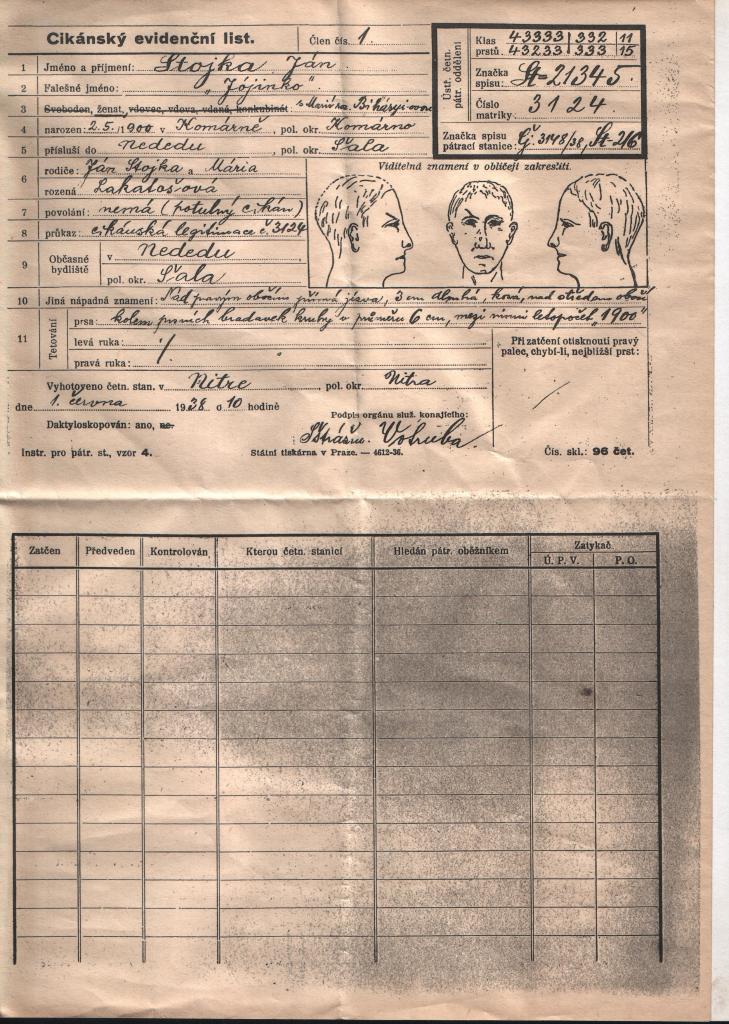 Cikánský evidenční list. Člen čís. 1.
Ústř. četn. pátr. oddělení
Klas prstů. 43333 332 11
43233 333 15
Značka spisu: St-21345.
Číslo matriky: 3124
Značka spisu pátrací stanice: Č. 3148/38, St-2/6
1 Jméno a příjmení: Stojka Ján
2 Falešné jméno: „Jójinko“
3 Svoboden, ženat, vdovec, vdova, vdaná, konkubinát: s Mariá roz. Biháryiovou
4 narozen: 2.5./1900 v Komárně, pol. okr. Komárno
5 přísluší do Nededu, pol. okr. Šala
6 rodiče: Ján Stojka a Mária
rozená Lakatošová
7 povolání: nemá (potulný cikán)
8 průkaz: cikánská legitimace č. 3124
9 Občasné bydliště v Nededu
pol. okr. Šala
Viditelná znamení v obličeji zakresliti.
10 Jiná nápadná znamení: Nad pravým obočím přímá jizva, 3 cm dlouhá, kosá, nad středem obočí
11 Tetování prsa: kolem prsních bradavek kruhy v průměru 6 cm, mezi nimi letopočet „1900“
levá ruka: /.
pravá ruka:
Při zatčení otisknouti pravý palec, chybí-li, nejbližší prst:
Vyhotoveno četn. stan. v Nitre, pol. okr. Nitra
dne 1. června 1938 o 10 hodině
Podpis orgánu služ. konajícího:
Daktyloskopován: ano, ne.
Strážm. Votruba
Instr. pro pátr. st., vzor 4. Státní tiskárna v Praze. — 4612-36. Čís. skl.: 96 čet.
Zatčen Předveden Kontrolován Kterou četn. stanicí Hledán pátr. oběžníkem Zatykač
Ú. P. V. P. O.